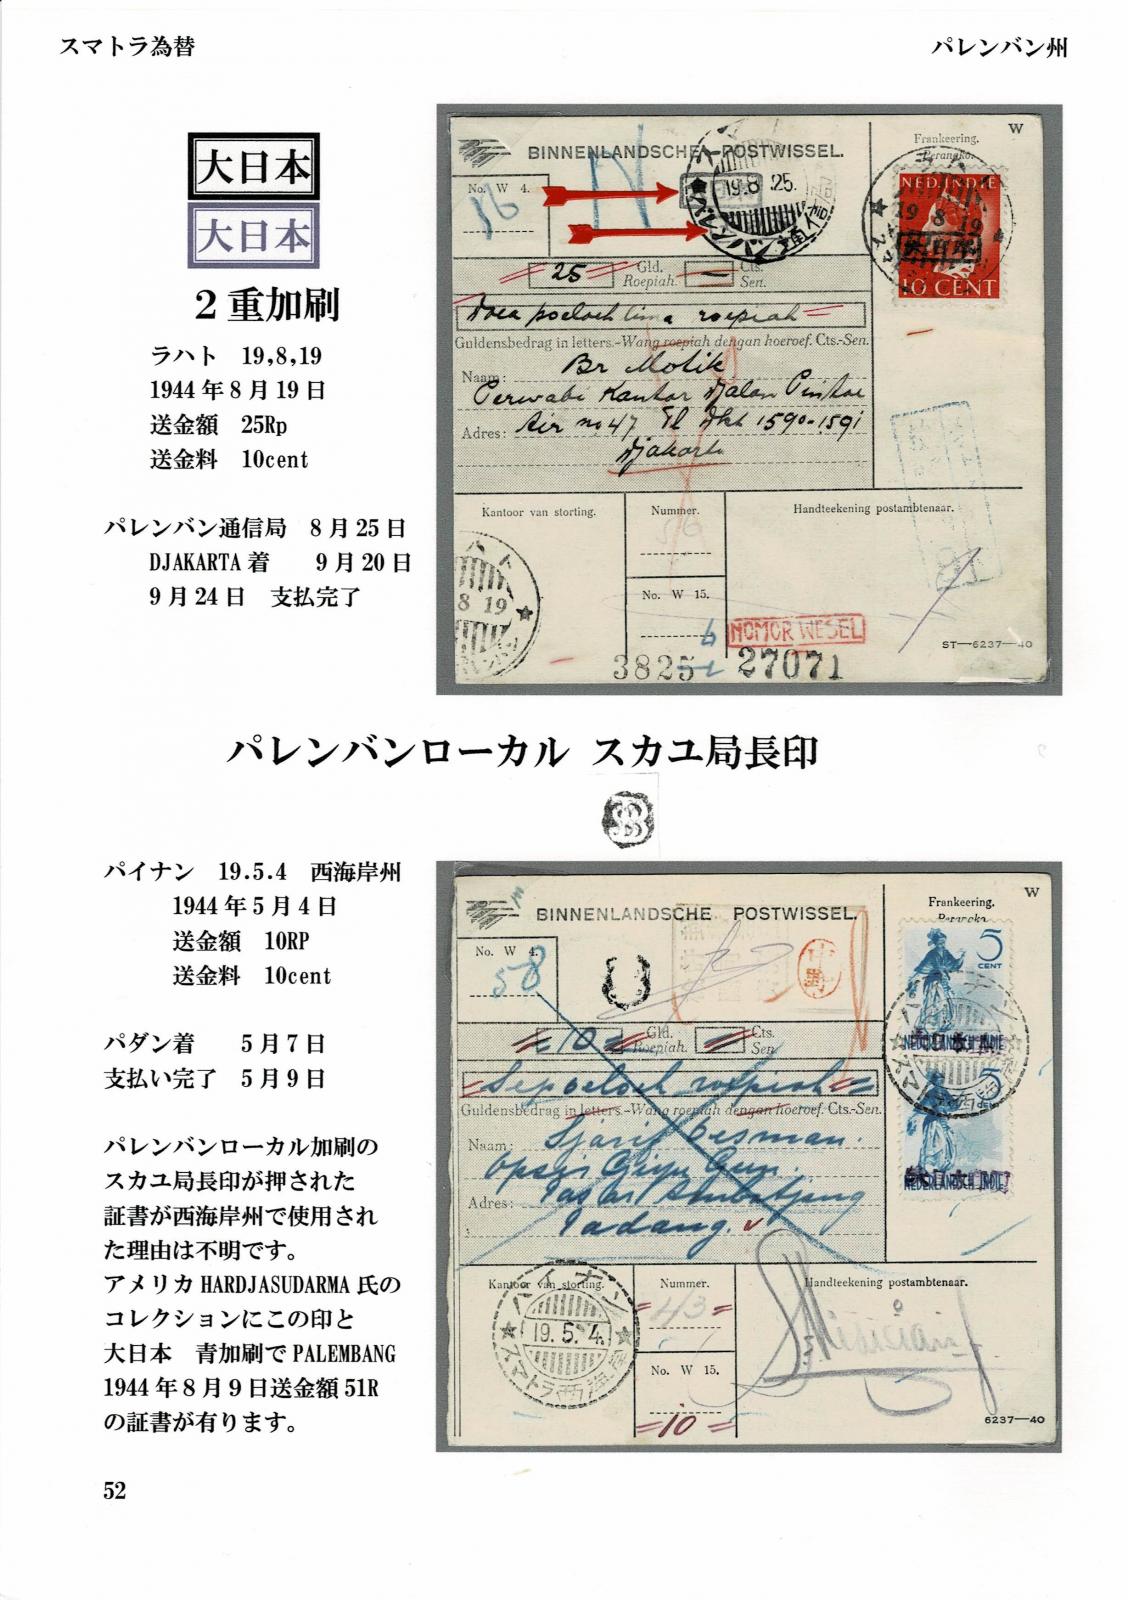 スマトラ為替
パレンバン州
大日本
大日本
２重加刷
ラハト 19,8,19
1944年8月19日
送金額 25Rp
送金料 10cent
パレンバン通信局 8月25日
DJAKARTA着 9月20日
9月24日 支払完了
BINNENLANDSCHE POSTWISSEL.
Frankeering.
Perangko.
W
No. W 4.
56
19.8.25.
NED.INDIE
19 8 19
10 CENT
25
Gld.
Roepiah.
—
Cts.
Sen.
Doea poeloeh lima roepiah
Guldensbedrag in letters.-Wang roepiah dengan hoeroef. Cts.-Sen.
Naam: Br Motik
Perwabi Kantor Djalan Pintoe
Adres: Air no 47 Tl Dkt 1590-1591
Djakarta
Kantoor van storting.
Nummer.
56
Handteekening postambtenaar.
ラハト
8 19
No. W 15.
NOMOR WESEL
3825
27071
ST—6237—40
パレンバンローカル スカユ局長印
パイナン 19.5.4 西海岸州
1944年5月4日
送金額 10RP
送金料 10cent
パダン着 5月7日
支払い完了 5月9日
パレンバンローカル加刷の
スカユ局長印が押された
証書が西海岸州で使用され
た理由は不明です。
アメリカHARDJASUDARMA氏の
コレクションにこの印と
大日本 青加刷でPALEMBANG
1944年8月9日送金額51R
の証書が有ります。
52
BINNENLANDSCHE POSTWISSEL.
Frankeering.
Perangko.
W
No. W 4.
58
5
CENT
NEDERLANDSCH INDIE
5
NEDERLANDSCH INDIE
10
Gld.
Roepiah.
Cts.
Sen.
Sepoeloeh roepiah
Guldensbedrag in letters.-Wang roepiah dengan hoeroef. Cts.-Sen.
Naam: Sjarif Oesman.
Adres:
Padang.
Kantoor van storting.
Nummer.
43
Handteekening postambtenaar.
パイナン
19.5.4.
スマトラ西海岸
No. W 15.
10
6237—40